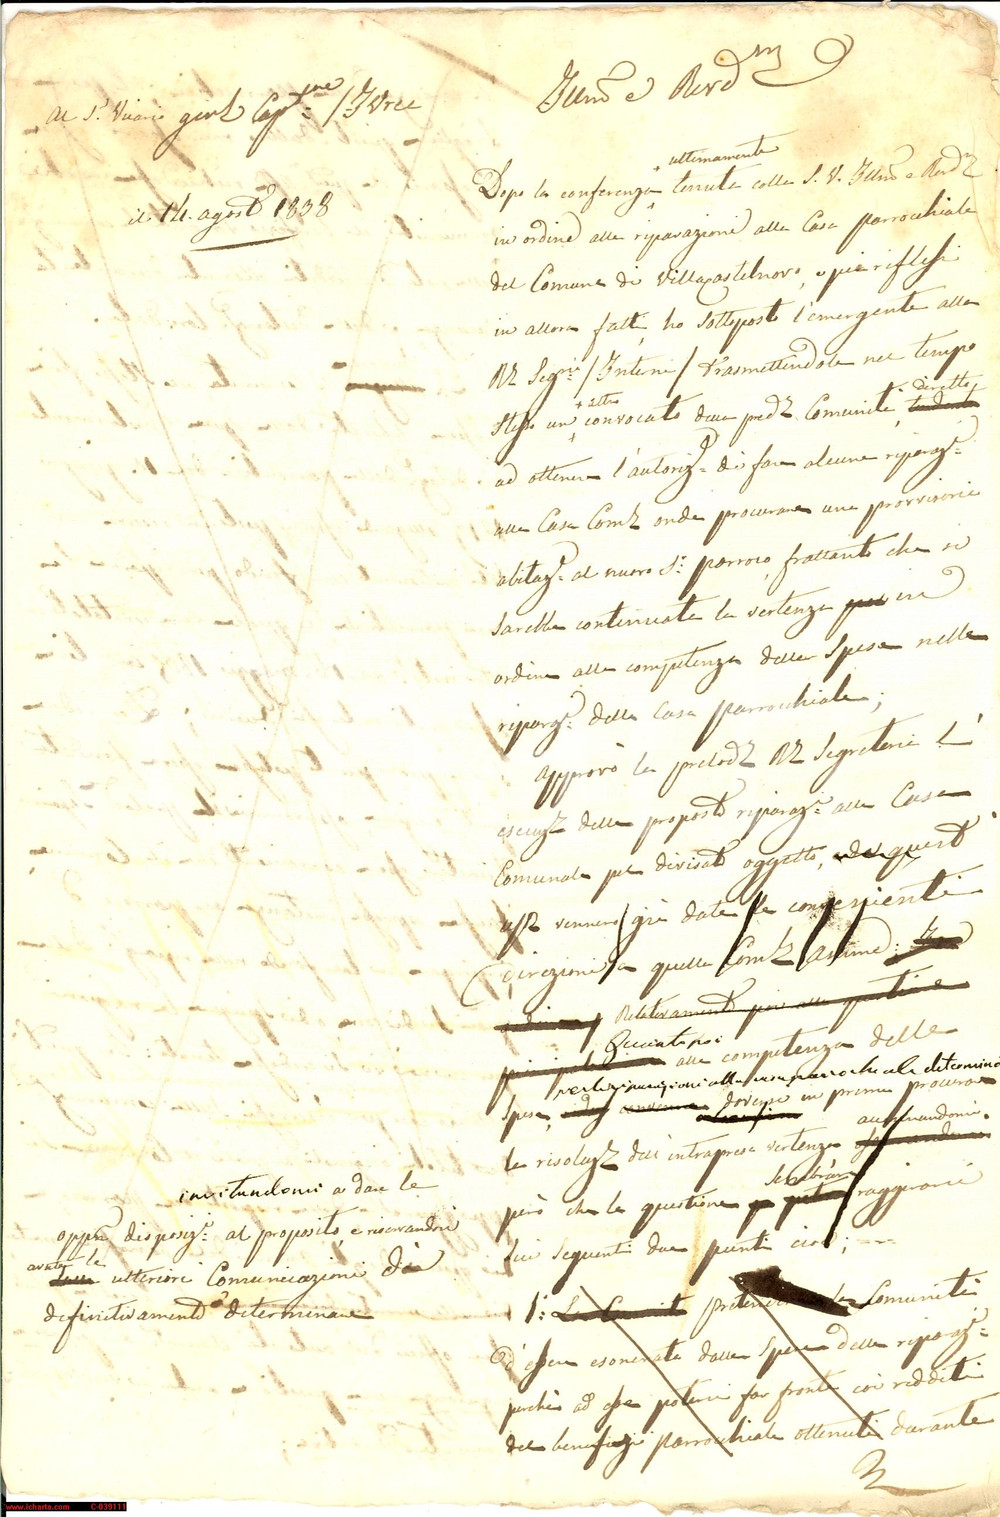 Al Sr. Vicario genl Capre / Ivrea
il 14. agosto 1838
Illmo e Revdmo
ultimamente
Dopo la conferenza tenuta colla S. V. Illma e Revdma
in ordine alle riparazioni alla Casa parrocchiale
del Comune di Villacastelnovo, e pei riflessi
in allora fatti, ho sottoposto l'emergente alla
Segria / Interni / trasmettendole nel tempo
altro diretto
stesso un convocato della predta Comunità,
ad ottenere l'autorizne di fare alcune riparazni
alla Casa Comle onde procurare una provvisoria
abitazne al nuovo Sr parroco, frattanto che si
sarebbe continuata la vertenza in
ordine alla competenza delle spese nelle
riparazni della Casa parrocchiale;
Approvò la prelodta Segreteria l'
esecuzne delle proposte riparazni alla Casa
Comunale pel divisato oggetto, e da quest'
uffo vennero già date le convenienti
direzioni a quella Comle Ammne;
Relativamente poi alla questione
Quanto poi
alla competenza delle
per le riparazioni alla casa parrocchiale determino
spese, doversi in prima procurare
accennandomi
la risoluzne dell'intrapresa vertenza
sembrami
però che la questione raggirarsi
sui seguenti due punti cioè; ---
1o. La Comunità pretende la Comunità
d'essere esonerata dalla spesa delle riparazni
perchè ad esse potersi far fronte coi redditi
del benefizio parrocchiale ottenuti durante
invitandomi a dare le
oppne disposizni al proposito, e riservandosi
avute le
ulteriori Comunicazioni di
definitivamente determinare
www.icharta.com C-039111